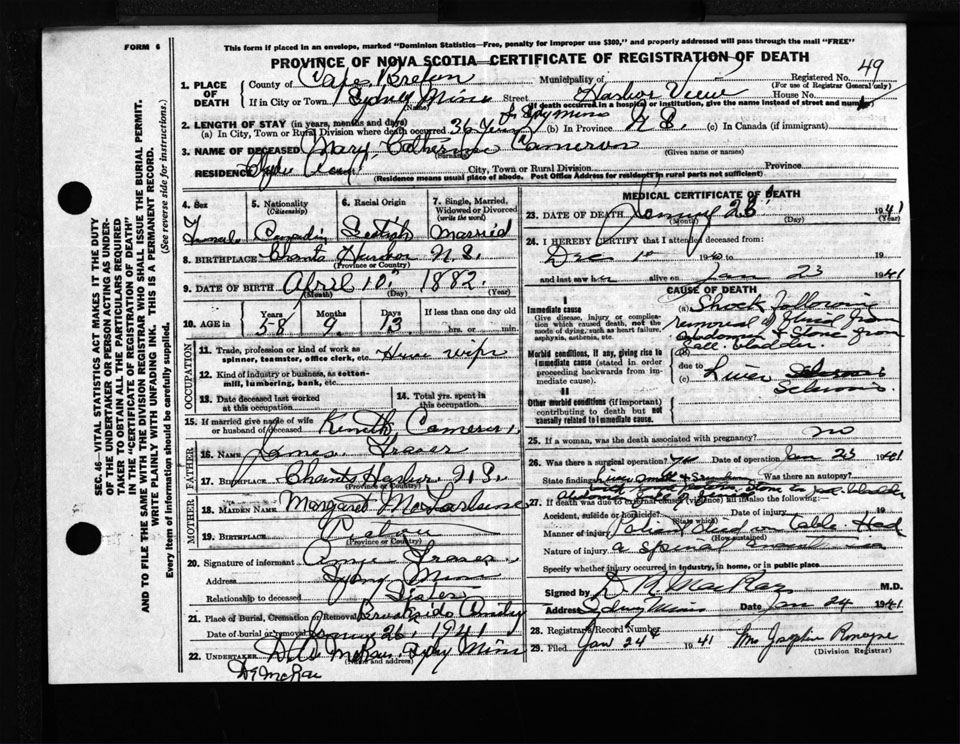 FORM 6
This form if placed in an envelope, marked "Dominion Statistics—Free, penalty for improper use $300," and properly addressed will pass through the mail "FREE"
PROVINCE OF NOVA SCOTIA—CERTIFICATE OF REGISTRATION OF DEATH
SEC. 46—VITAL STATISTICS ACT MAKES IT THE DUTY
OF THE UNDERTAKER OR PERSON ACTING AS UNDER-
TAKER TO OBTAIN ALL THE PARTICULARS REQUIRED
IN THE "CERTIFICATE OF REGISTRATION OF DEATH"
AND TO FILE THE SAME WITH THE DIVISION REGISTRAR WHO SHALL ISSUE THE BURIAL PERMIT.
WRITE PLAINLY WITH UNFADING INK. THIS IS A PERMANENT RECORD.
Every item of Information should be carefully supplied. (See reverse side for instructions.)
1. PLACE OF DEATH
County of Cape Breton Municipality of Registered No. 49
(For use of Registrar General only)
If in City or Town Sydney Mines Street Harbor View House No.
(Name) If death occurred in a hospital or institution, give the name instead of street and number
2. LENGTH OF STAY (in years, months and days)
(a) In City, Town or Rural Division where death occurred 36 Years (b) In Province N.S. (c) In Canada (if immigrant)
3. NAME OF DECEASED Mary Catherine Cameron
(Given name or names)
RESIDENCE Clyde City, Town or Rural Division Province
(Residence means usual place of abode. Post Office Address for residents in rural parts not sufficient)
4. Sex Female
5. Nationality (Citizenship) Canadian
6. Racial Origin Scotish
7. Single, Married, Widowed or Divorced (write the word) Married
8. BIRTHPLACE Harbor N.S.
(Province or Country)
9. DATE OF BIRTH April 10. 1882.
(Month) (Day) (Year)
10. AGE in Years 58 Months 9 Days 13 If less than one day old
hrs. or min.
OCCUPATION
11. Trade, profession or kind of work as
spinner, teamster, office clerk, etc. House wife
12. Kind of industry or business, as cotton-
mill, lumbering, bank, etc.
13. Date deceased last worked
at this occupation
14. Total yrs. spent in
this occupation
15. If married give name of wife
or husband of deceased Kenneth Cameron
FATHER
16. NAME James Fraser
17. BIRTHPLACE Harbor N.S.
(Province or Country)
MOTHER
18. MAIDEN NAME Margaret McFarlane
19. BIRTHPLACE
(Province or Country)
20. Signature of informant Annie Fraser
Address Sydney Mines
Relationship to deceased Sister
21. Place of Burial, Cremation or Removal Brookside Cemetery
Date of burial or removal January 26, 1941
22. UNDERTAKER D.A. McRae, Sydney Mines
(Name and address)
D A McRae
MEDICAL CERTIFICATE OF DEATH
23. DATE OF DEATH January 23 1941
(Month) (Day) (Year)
24. I HEREBY CERTIFY that I attended deceased from
Dec 1st 1940 to
and last saw her alive on Jan 23 1941
CAUSE OF DEATH
I
Immediate cause
Give disease, injury or complica-
tion which caused death, not the
mode of dying, such as heart failure,
asphyxia, asthenia, etc.
(a) Shock following
removal of fluid from
abdomen & stone from
Gall bladder.
Morbid conditions, if any, giving rise to
immediate cause (stated in order
proceeding backwards from im-
mediate cause).
(b)
due to
(c) Liver
II
Other morbid conditions (important)
contributing to death but not
causally related to immediate cause.
25. If a woman, was the death associated with pregnancy? no
26. Was there a surgical operation? yes Date of operation Jan 23 1941
State findings Liver small & Was there an autopsy?
27. If death was due to external causes (violence) fill in also the following:
Accident, suicide or homicide? Date of injury
(State which)
Manner of injury Patient died on table Had
(How sustained)
Nature of injury a spinal
Specify whether injury occurred in industry, in home, or in public place
Signed by MacKay M.D.
Address Sydney Mines Date Jan 24 1941
28. Registrar's Record Number
29. Filed Jan 24 1941 Mrs Josephine
(Division Registrar)